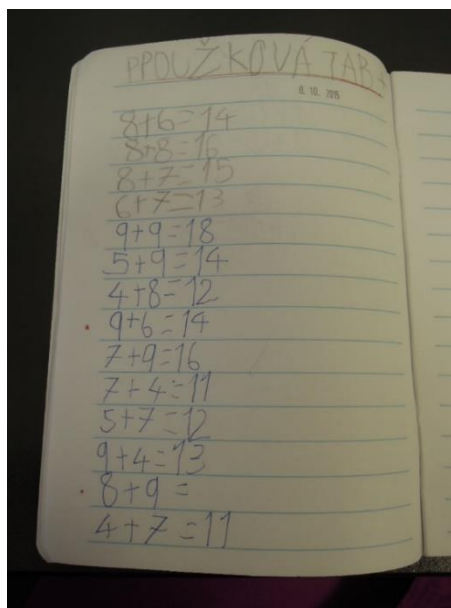 PPOUŽKOVÁ TAB.
8. 10. 2015
8+6=14
8+8=16
8+7=15
6+7=13
9+9=18
5+9=14
4+8=12
9+6=14
7+9=16
7+4=11
5+7=12
9+4=13
8+9=
4+7=11